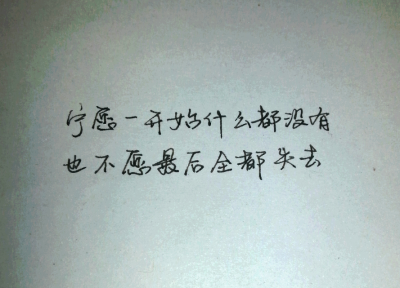 宁愿一开始什么都没有
也不愿最后全都失去